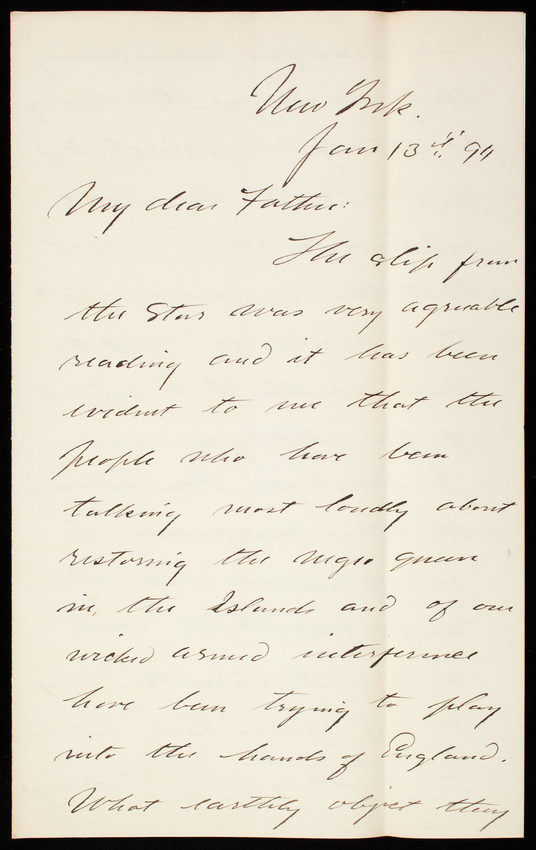 New York.
Jan 13th. 94
My dear Father:
The slip from
the Star was very agreeable
reading and it has been
evident to me that the
people who have been
talking most loudly about
restoring the negro queen
in, the Islands and of our
wicked armed interference
have been trying to play
into the hands of England.
What earthly object they